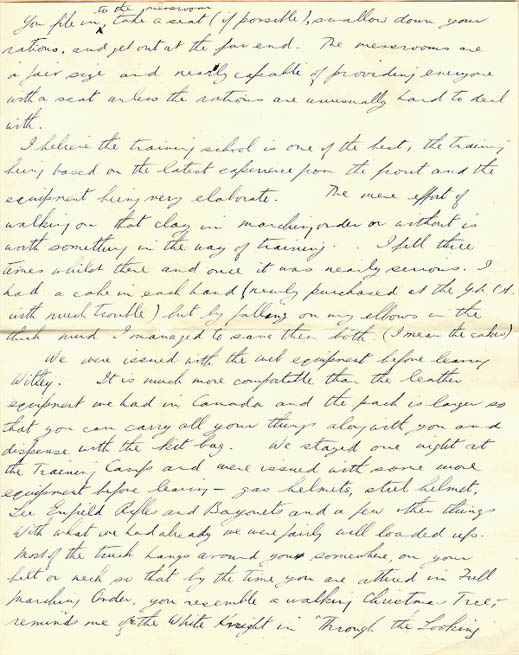 to the messroom
You file in, take a seat (if possible), swallow down your
rations, and get out at the far end. The messrooms are
a fair size and nearly capable of providing everyone
with a seat unless the rations are unusually hard to deal
with.
I believe the training school is one of the best, the training
being based on the latest experience from the front and the
equipment being very elaborate. The mere effort of
walking on that clay in marching order or without is
worth something in the way of training. . I fell three
times whilst there and once it was nearly serious. I
had a cake in each hand (newly purchased at the Y.M.C.A.
with much trouble) but by falling on my elbows in the
thick mud I managed to save them both. (I mean the cakes)
We were issued with the web equipment before leaving
Witley. It is much more comfortable than the leather
equipment we had in Canada and the pack is larger so
that you can carry all your things along with you and
dispense with the kit bag. We stayed one night at
the Training Camp and were issued with some more
equipment before leaving - gas helmets, steel helmet,
Lee Enfield Rifles and Bayonets and a few other things
With what we had already we were fairly well loaded up.
Most of the truck hangs around you somewhere, on your
belt or neck so that by the time you are attired in Full
Marching Order, you resemble a walking Christmas Tree,-
reminds me of the White Knight in "Through the Looking